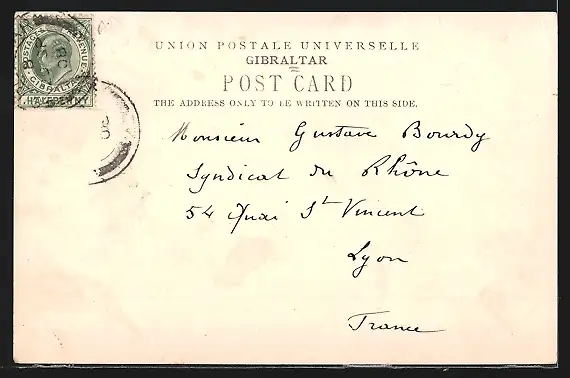 UNION POSTALE UNIVERSELLE
GIBRALTAR
POST CARD
THE ADDRESS ONLY TO BE WRITTEN ON THIS SIDE.
POSTAGE & REVENUE
GIBRALTAR
HALFPENNY
Monsieur Gustave Bourdy
Syndicat du Rhône
54 Quai St Vincent
Lyon
France